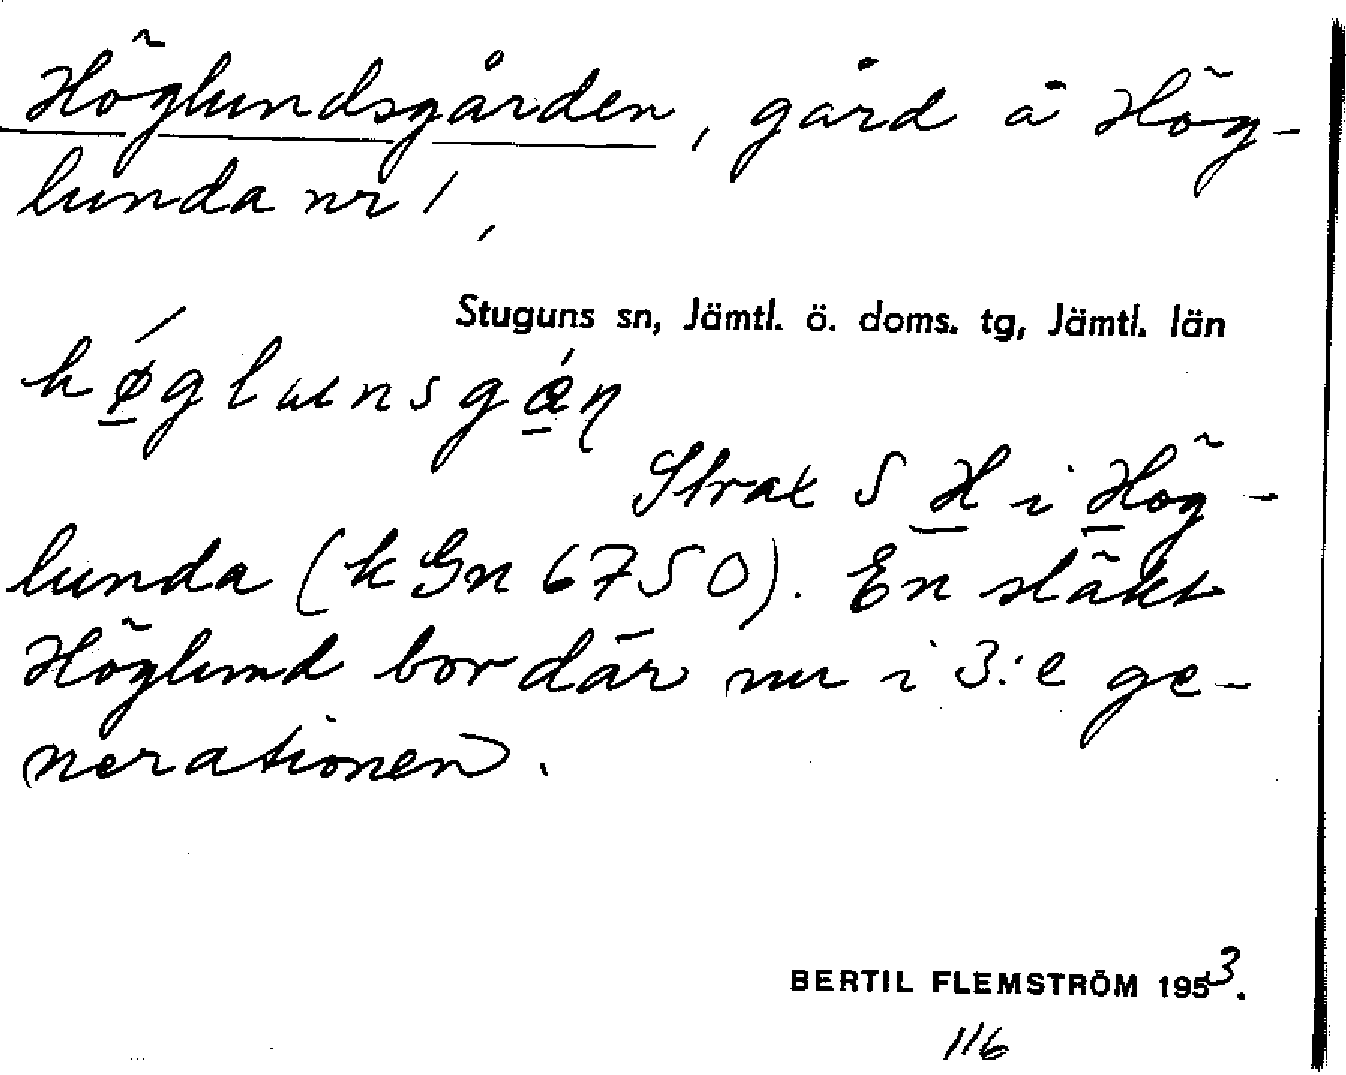 Höglundsgården, gård å Hög-
lunda nr 1,
Stuguns sn, Jämtl. ö. doms. tg, Jämtl. län
hǿ̱glunsgǽ̱ɳ
Strax S H i Hög-
lunda (kGn 6750). En släkt
Höglund bor där nu i 3:e ge-
nerationen.
BERTIL FLEMSTRÖM 1953.
116